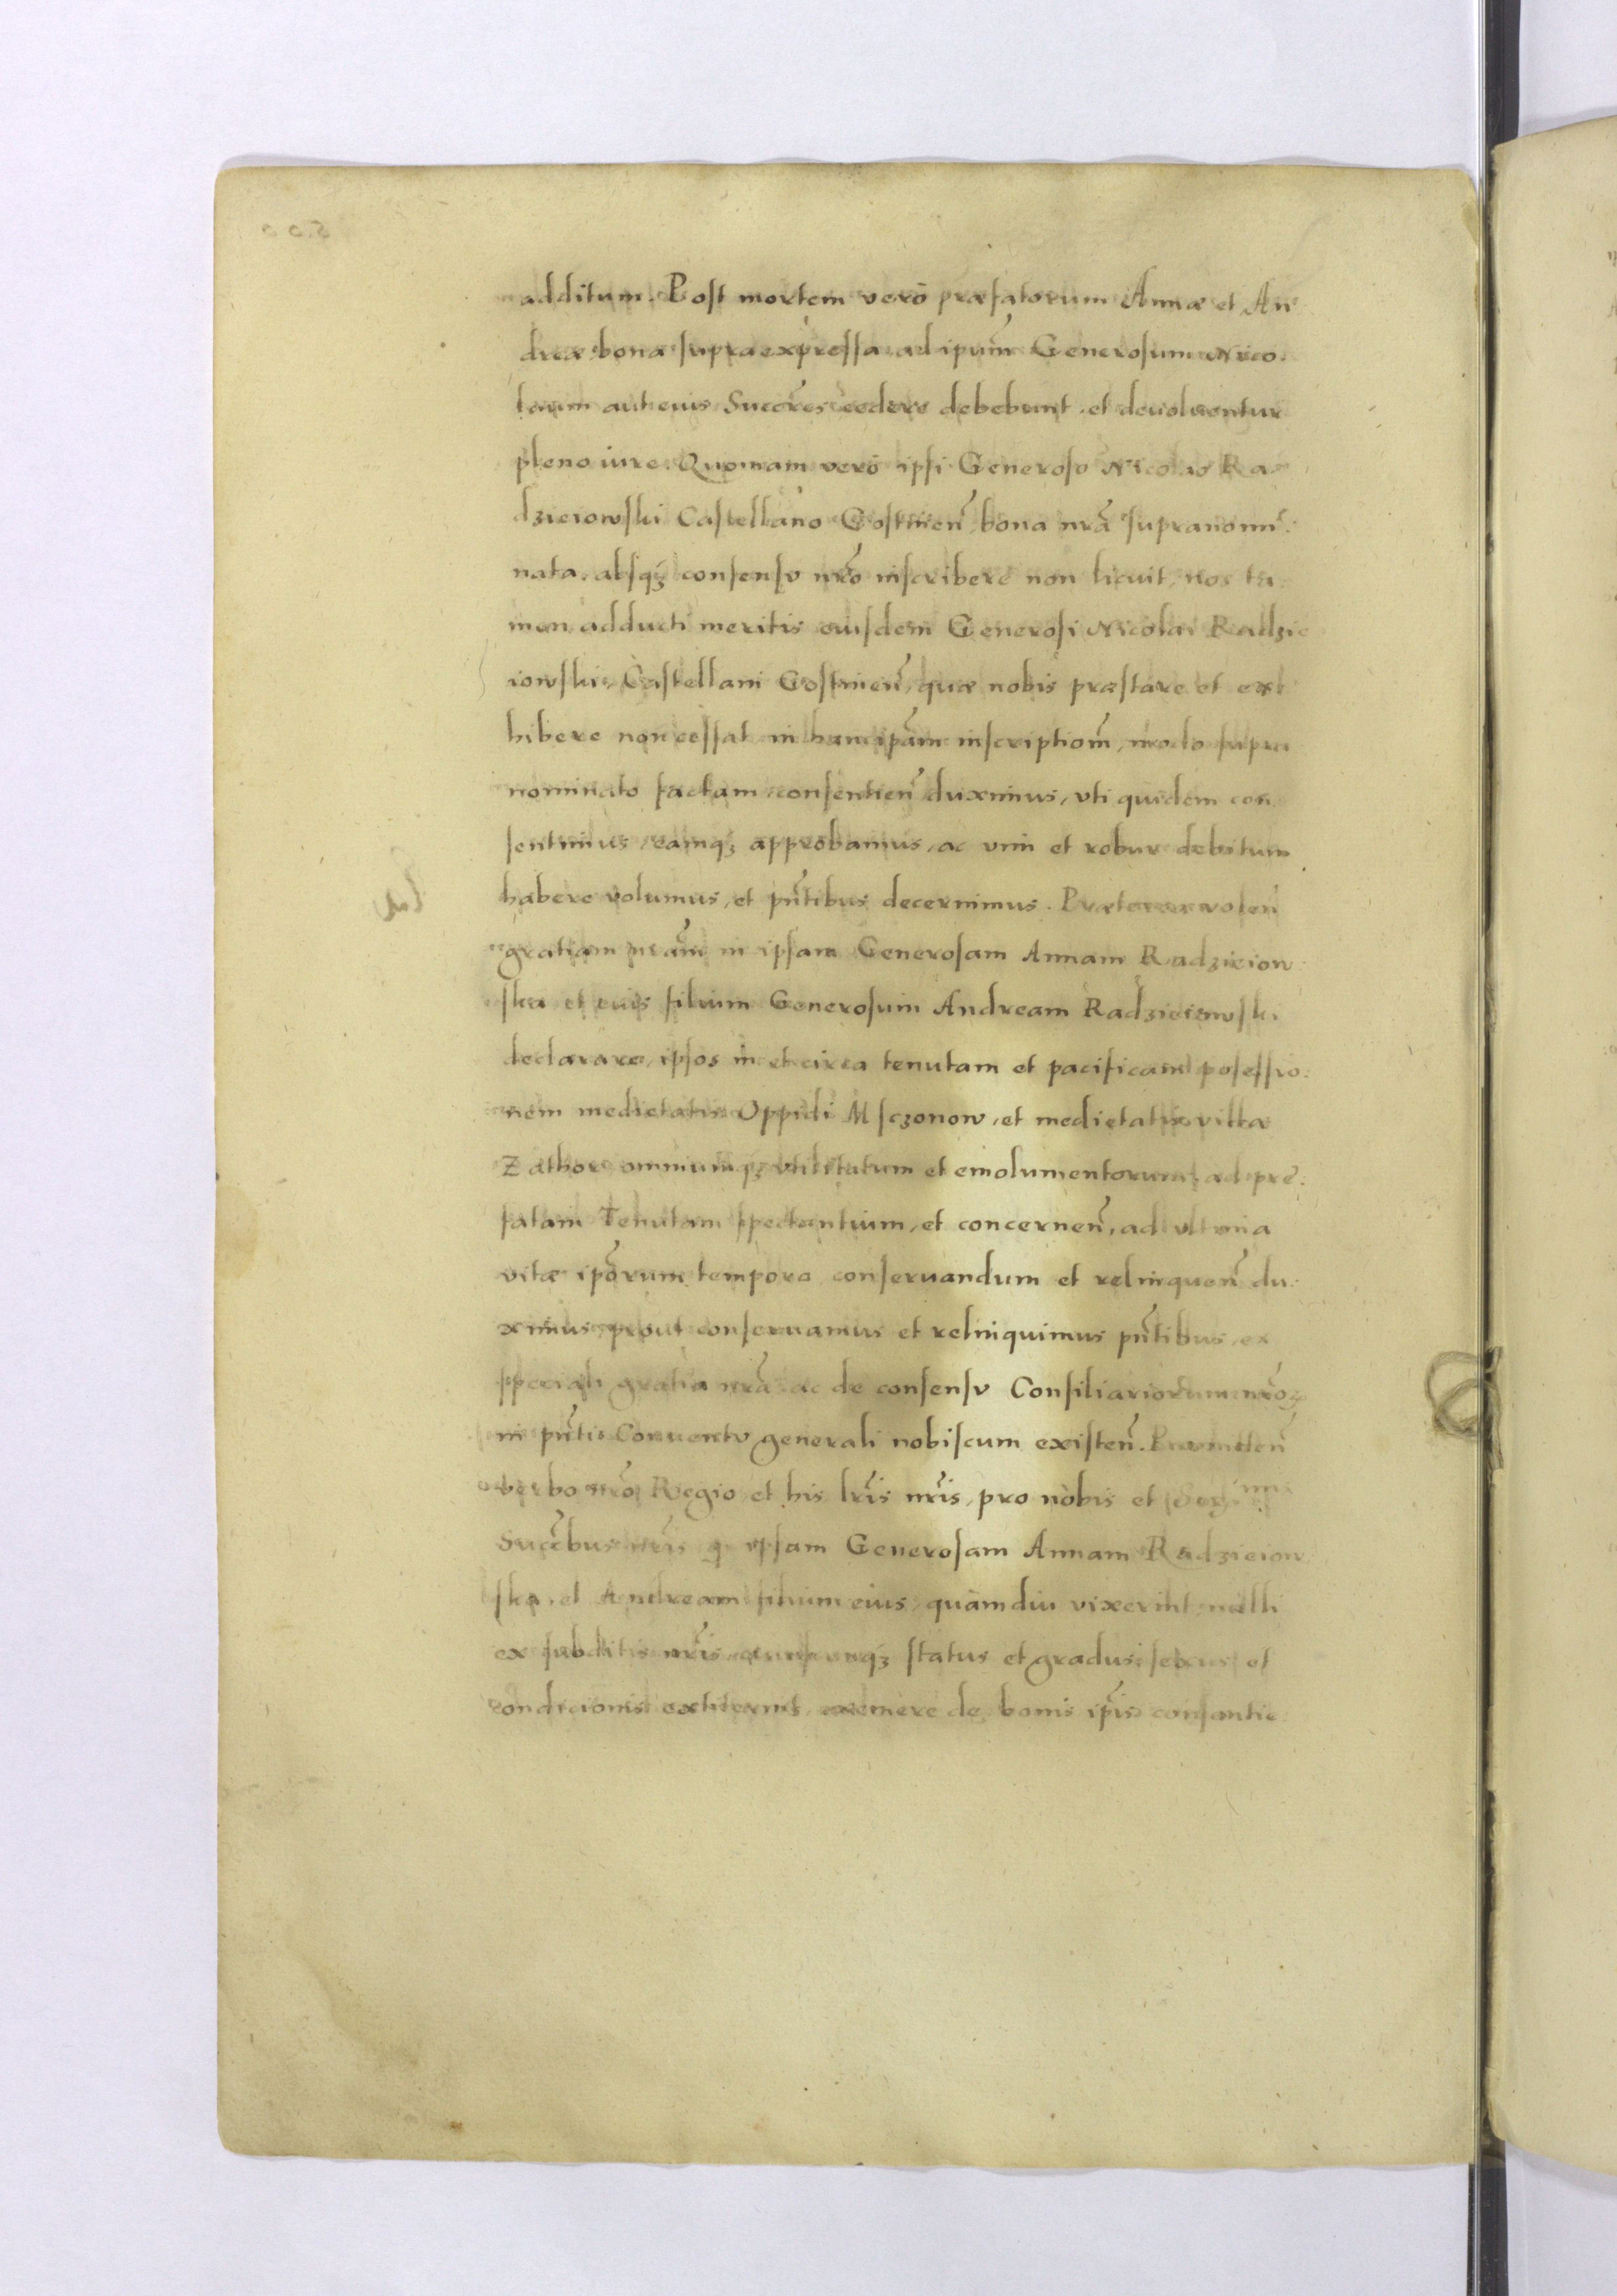 additum. Post mortem verò præfatorum Annæ et An
dreæ bona supraexpressa ad ipsum̃ Generosum Nico.
laum aut eius Succr̃es cedere debebunt, et devoluentur
pleno iure. Quoniam verò ipsi Generoso Nicolao Ra
dzieiowski Castellano Gostinen̄ bona nr̃a supranomi.
nata, absq̨ consensv nr̃o inscribere non licuit, nos ta
men adducti meritis eiusdem Generosi Nicolai Radzie
iowski, Castellani Gostinen̄, quæ nobis præstare et ex
hibere non cessat in hanc ip̃am inscriptiom̃, modo supra
nominato factam consentien̄ duximus, vti quidem con
sentimus, eamq̨ approbamus, ac vim et robur debitum
habere volumus, et pn̄tibus decernimus. Præterea volen̄
gratiam nr̃am in ipsam Generosam Annam Radzieiow
ska et eius filium Generosum Andream Radzieiowski
declarare, ipsos in et circa tenutam et pacificam posessio.
nem medietatis Oppidi Msczonow, et medietatis villæ
Zathor omniumq̨ vtilitatum et emolumentorum, ad præ.
fatam Tenutam spectantium, et concernen̄, ad vltima
vitæ ip̃orum tempora conseruandum et relinquen̄ du.
ximus, prout conseruamus et relinquimus pn̄tibus, ex
speciali gratia nr̃a ac de consensv Consiliariorum nr̃oꝝ
in pn̄ti Conventv generali nobiscum existen̄. Promitten̄
verbo nr̃o Regio et his lr̃is nr̃is, pro nobis et
Succr̃bus nr̃is q̨ ipsam Generosam Annam Radzieiow
ska, et Andream filium eius, quàmdiu vixerint, nulli
ex subditis nr̃is, cuiuscunq̨ status et gradus, sexus et
condicionis extiterint, eximere de bonis ip̃is consentie